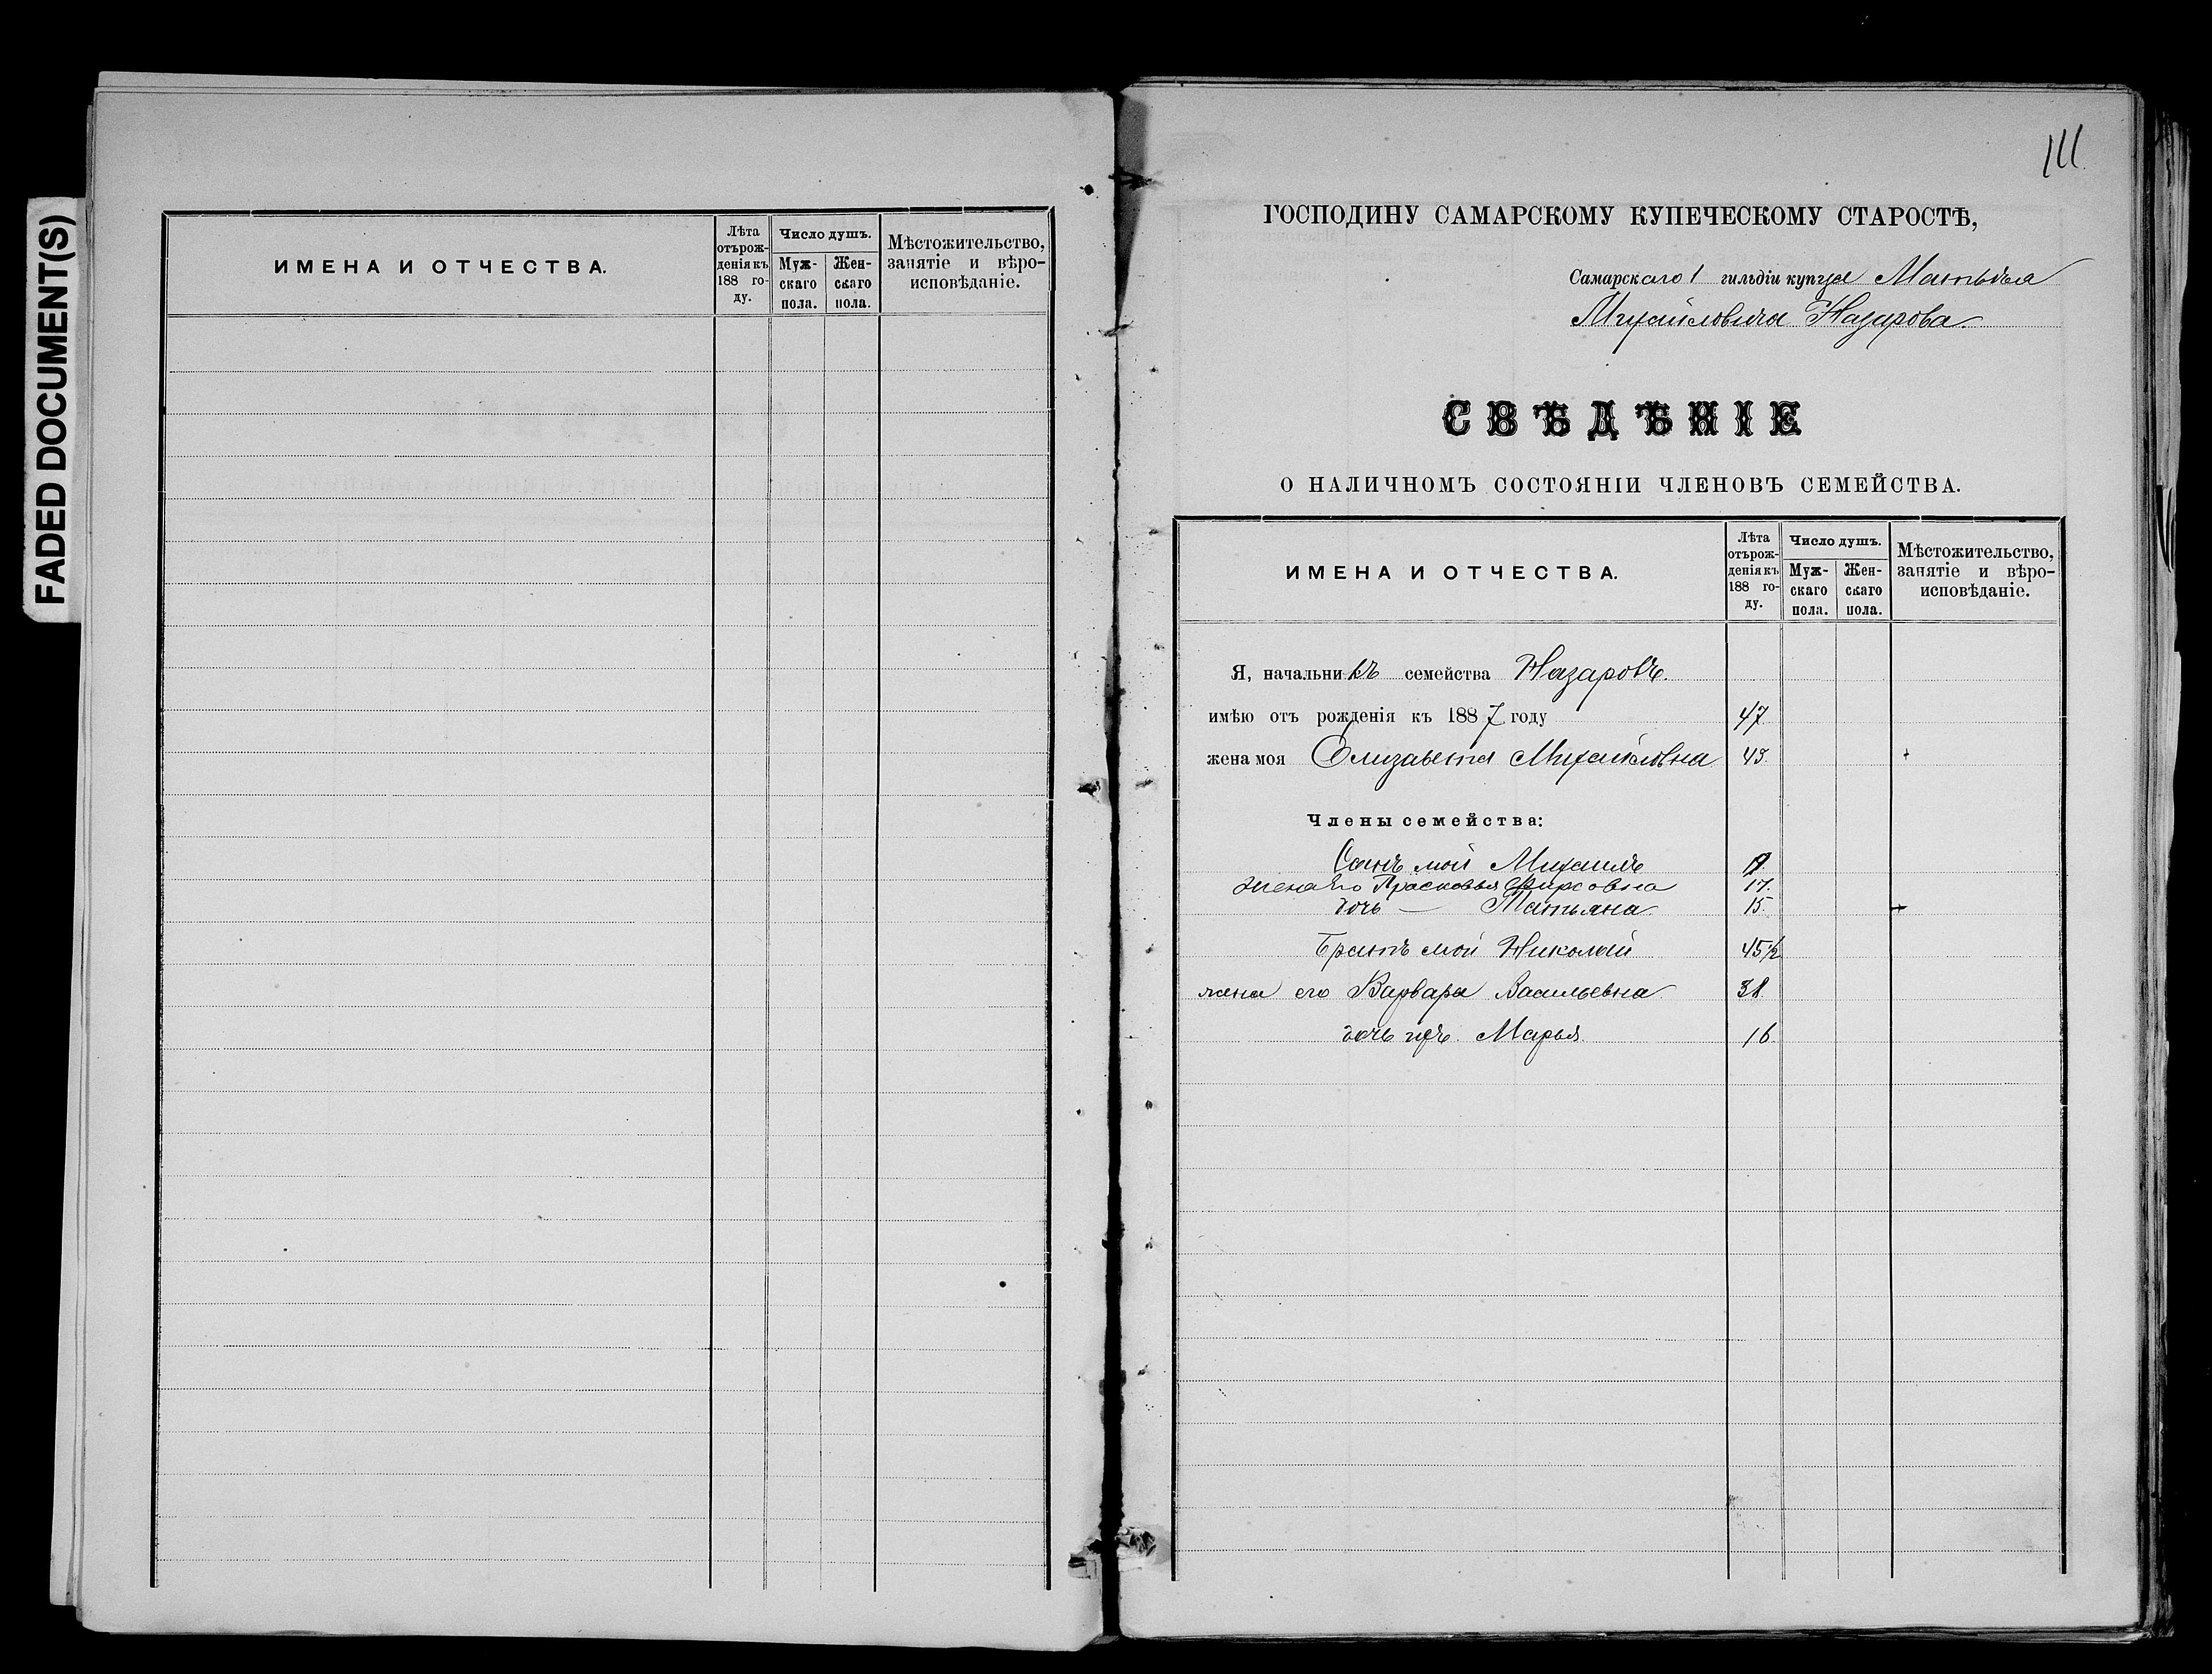 FADED DOCUMENT(S)
ИМЕНА И ОТЧЕСТВА.
Лѣта отърожденія къ 188 году.
Число душъ.
Мужскаго пола.
Женскаго пола.
Мѣстожительство, занятіе и вѣроисповѣданіе.
111
ГОСПОДИНУ САМАРСКОМУ КУПЕЧЕСКОМУ СТАРОСТѢ,
Самарскаго 1 гильдіи купца Матвѣя
Михайловича Назарова.
СВѢДѢНІЕ
О НАЛИЧНОМЪ СОСТОЯНІИ ЧЛЕНОВЪ СЕМЕЙСТВА.
ИМЕНА И ОТЧЕСТВА.
Лѣта отърожденія къ 188 году.
Число душъ.
Мужскаго пола.
Женскаго пола.
Мѣстожительство, занятіе и вѣроисповѣданіе.
Я, начальникъ семейства Назаровъ.
имѣю отъ рожденія къ 1887 году 47
жена моя Елизавета Михайловна 43
Члены семейства:
Сынъ мой Михаилъ
жена его Прасковья Фирсовна 17.
дочь — Татьяна 15
Братъ мой Николай 45 1/2
жена его Варвара Васильевна 38
дочь ихъ Марья. 16